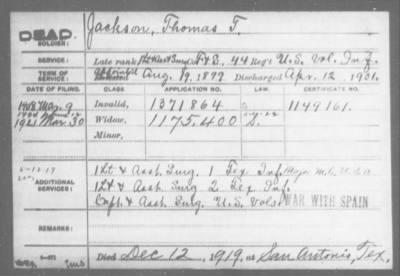 DEAD. Jackson, Thomas T.
SOLDIER:
SERVICE: Late rank 1st Lt & Asst Surg F & S, 44 Reg't U.S. Vol. Inf.
TERM OF SERVICE: Appointed Enlisted Aug. 19, 1899 Discharged Apr. 12, 1901.
DATE OF FILING. CLASS. APPLICATION NO. LAW. CERTIFICATE NO.
1908 May 9 Invalid, 1371864 1149161.
1921 Mar. 30 Widow, 1175.400
Minor,
ADDITIONAL SERVICES: 1 Lt & Asst. Surg. 1 Tex Inf. Major M.C. U.S.A
1 Lt & Asst. Surg 2 Tex Inf.
Capt. & Asst. Surg. U.S. Vols. WAR WITH SPAIN
REMARKS:
Died Dec 12, 1919, at San Antonio, Tex.